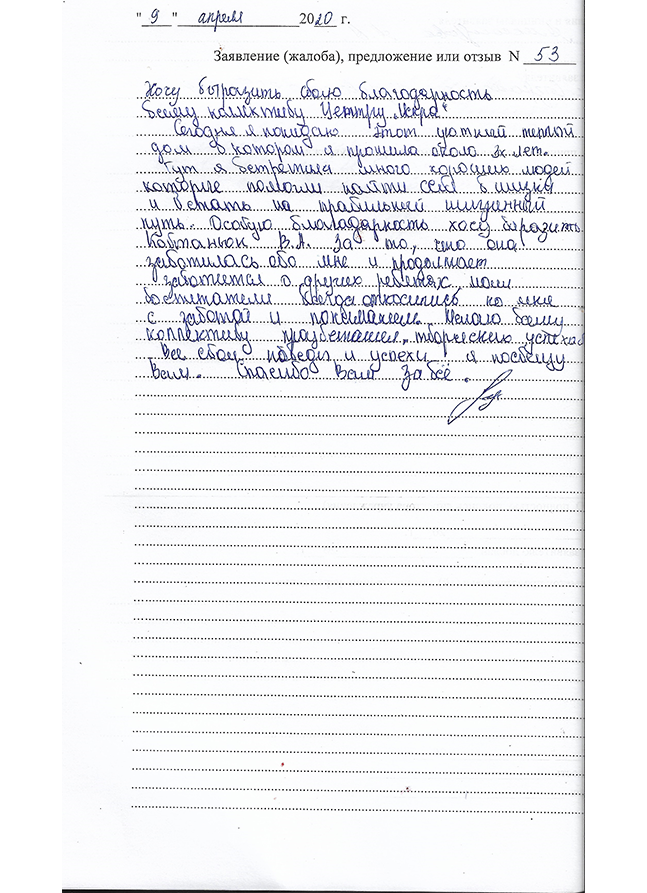 "9" апреля 2020 г.
Заявление (жалоба), предложение или отзыв N 53
Хочу выразить свою благодарность
всему коллективу Центру „Искра"
Сегодня я покидаю этот уютный теплой
дом в котором я прожила около 3х лет.
Тут я встретила много хороших людей
которые помогли найти себя в жизни
и встать на правильный жизненный
путь. Особую благодарность хочу выразить
Ковтанюк В.А. За то, что она
заботилась обо мне и продолжает
заботиться о других ребятах, мои
воспитатели всегда относились ко мне
с заботой и пониманием. Желаю всему
коллективу процветания, творческих успехов
Все свои победы и успехи я посвящу
Вам. Спасибо Вам за всё.